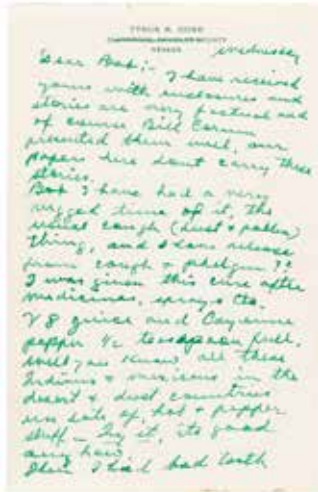 TYRUS R. COBB
NEVADA
Wednesday
Dear Bob;- I have received
yours with enclosures and
stories are very factual and
of course Bill Corum
presented them well, our
papers here dont carry these
stories.
Bob I have had a very
rugged time of it, the
usual cough (dust & pollen)
thing, and I have release
from cough & phelgm ??
I was given this cure after
medicines, sprays etc.
V8 juice and Cayenne
pepper 1/2 teaspoon full,
well you know all these
Indians & mexicans in the
desert & dust countries
use lots of hot & pepper
stuff - Try it, its good
any how
Then I had bad tooth